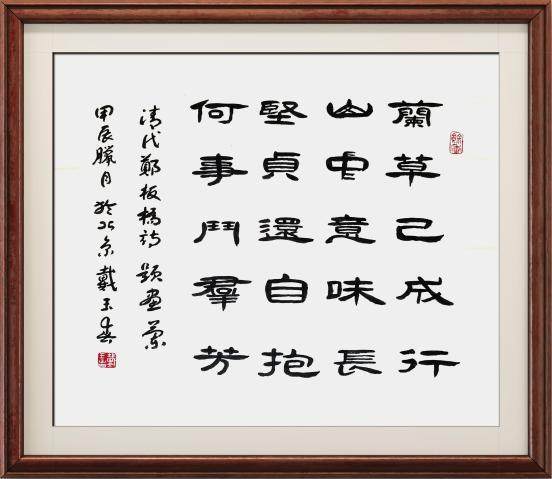 蘭草已成行
山中意味長
堅貞還自抱
何事鬥羣芳
清代鄭板橋詩 題畫蘭
甲辰臘月於北京戴玉春